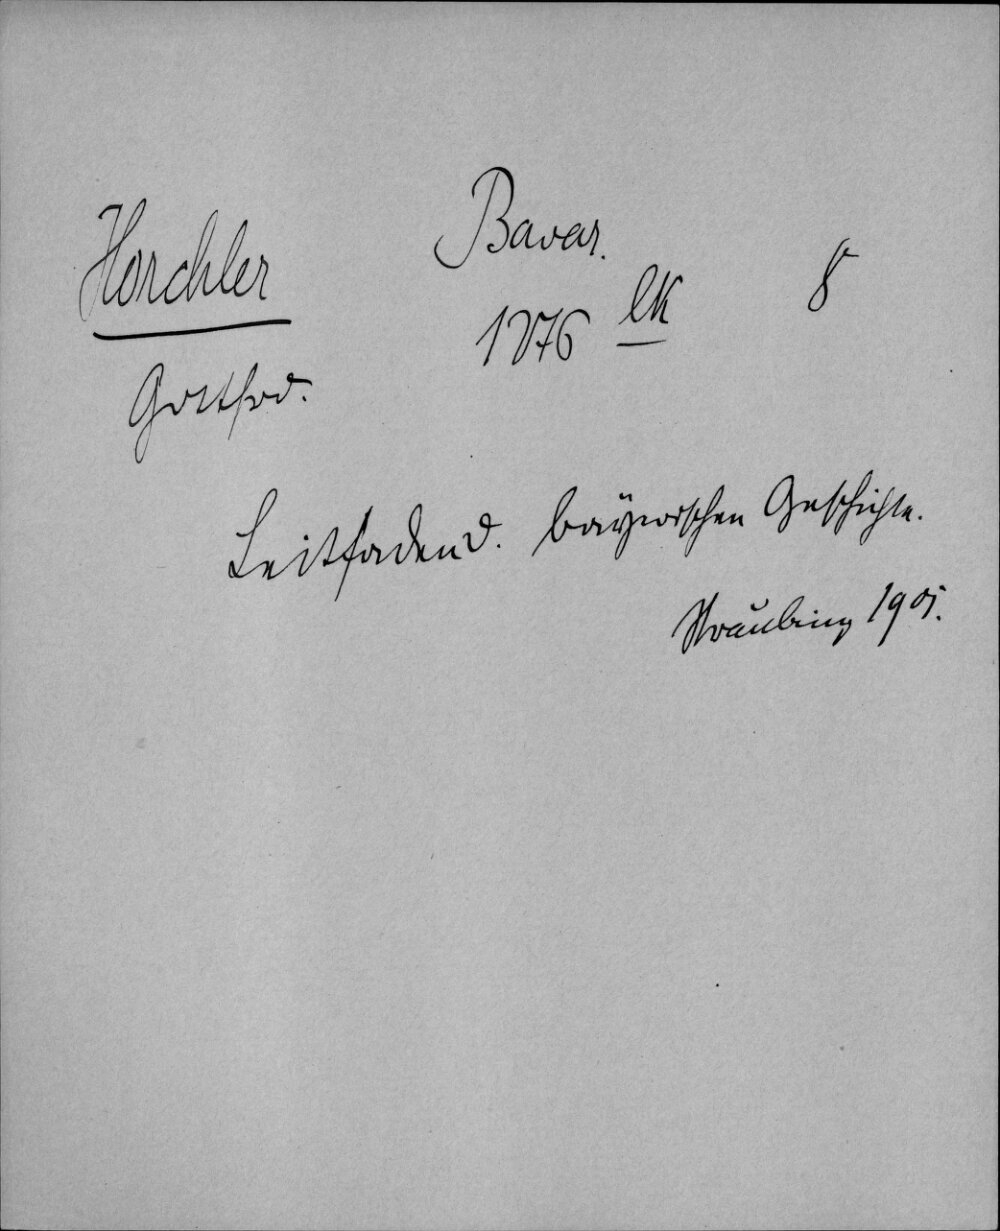 Horchler
Gottfrd.
Bavar.
1276 lK
8
Leitfaden d. bayerischen Geschichte.
Straubing 1901.